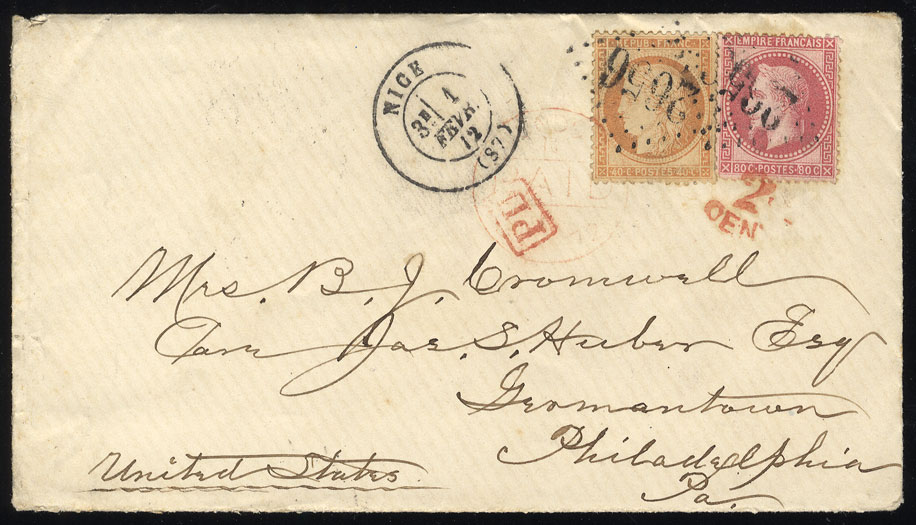 NICE
3E 1
FEVR.
72
(87)
REPUB. FRANC.
40 C·POSTES·40 C
EMPIRE FRANÇAIS
80 C·POSTES·80 C
2656
PD
2
CEN
Mrs. B. J. Cromwell
Care Jas. S. Huber Esq
Germantown
Philadelphia
Pa.
United States